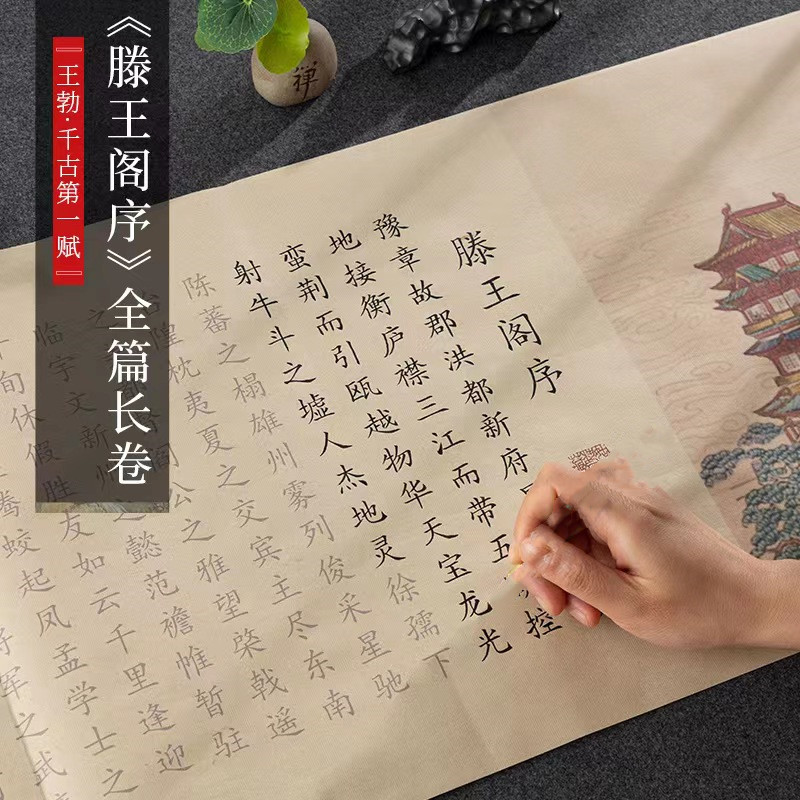 《滕王阁序》全篇长卷
『王勃·千古第一赋』
禅
滕王阁序
豫章故郡洪都新府
地接衡庐襟三江而带五控
蛮荆而引瓯越物华天宝龙光
射牛斗之墟人杰地灵徐孺下
陈蕃之榻雄州雾列俊采星驰
隍枕夷夏之交宾主尽东南
之阎公之雅望棨戟遥
临宇文新州之懿范襜帷暂驻
旬休假胜友如云千里逢迎
腾蛟起凤孟学士之
将军之武